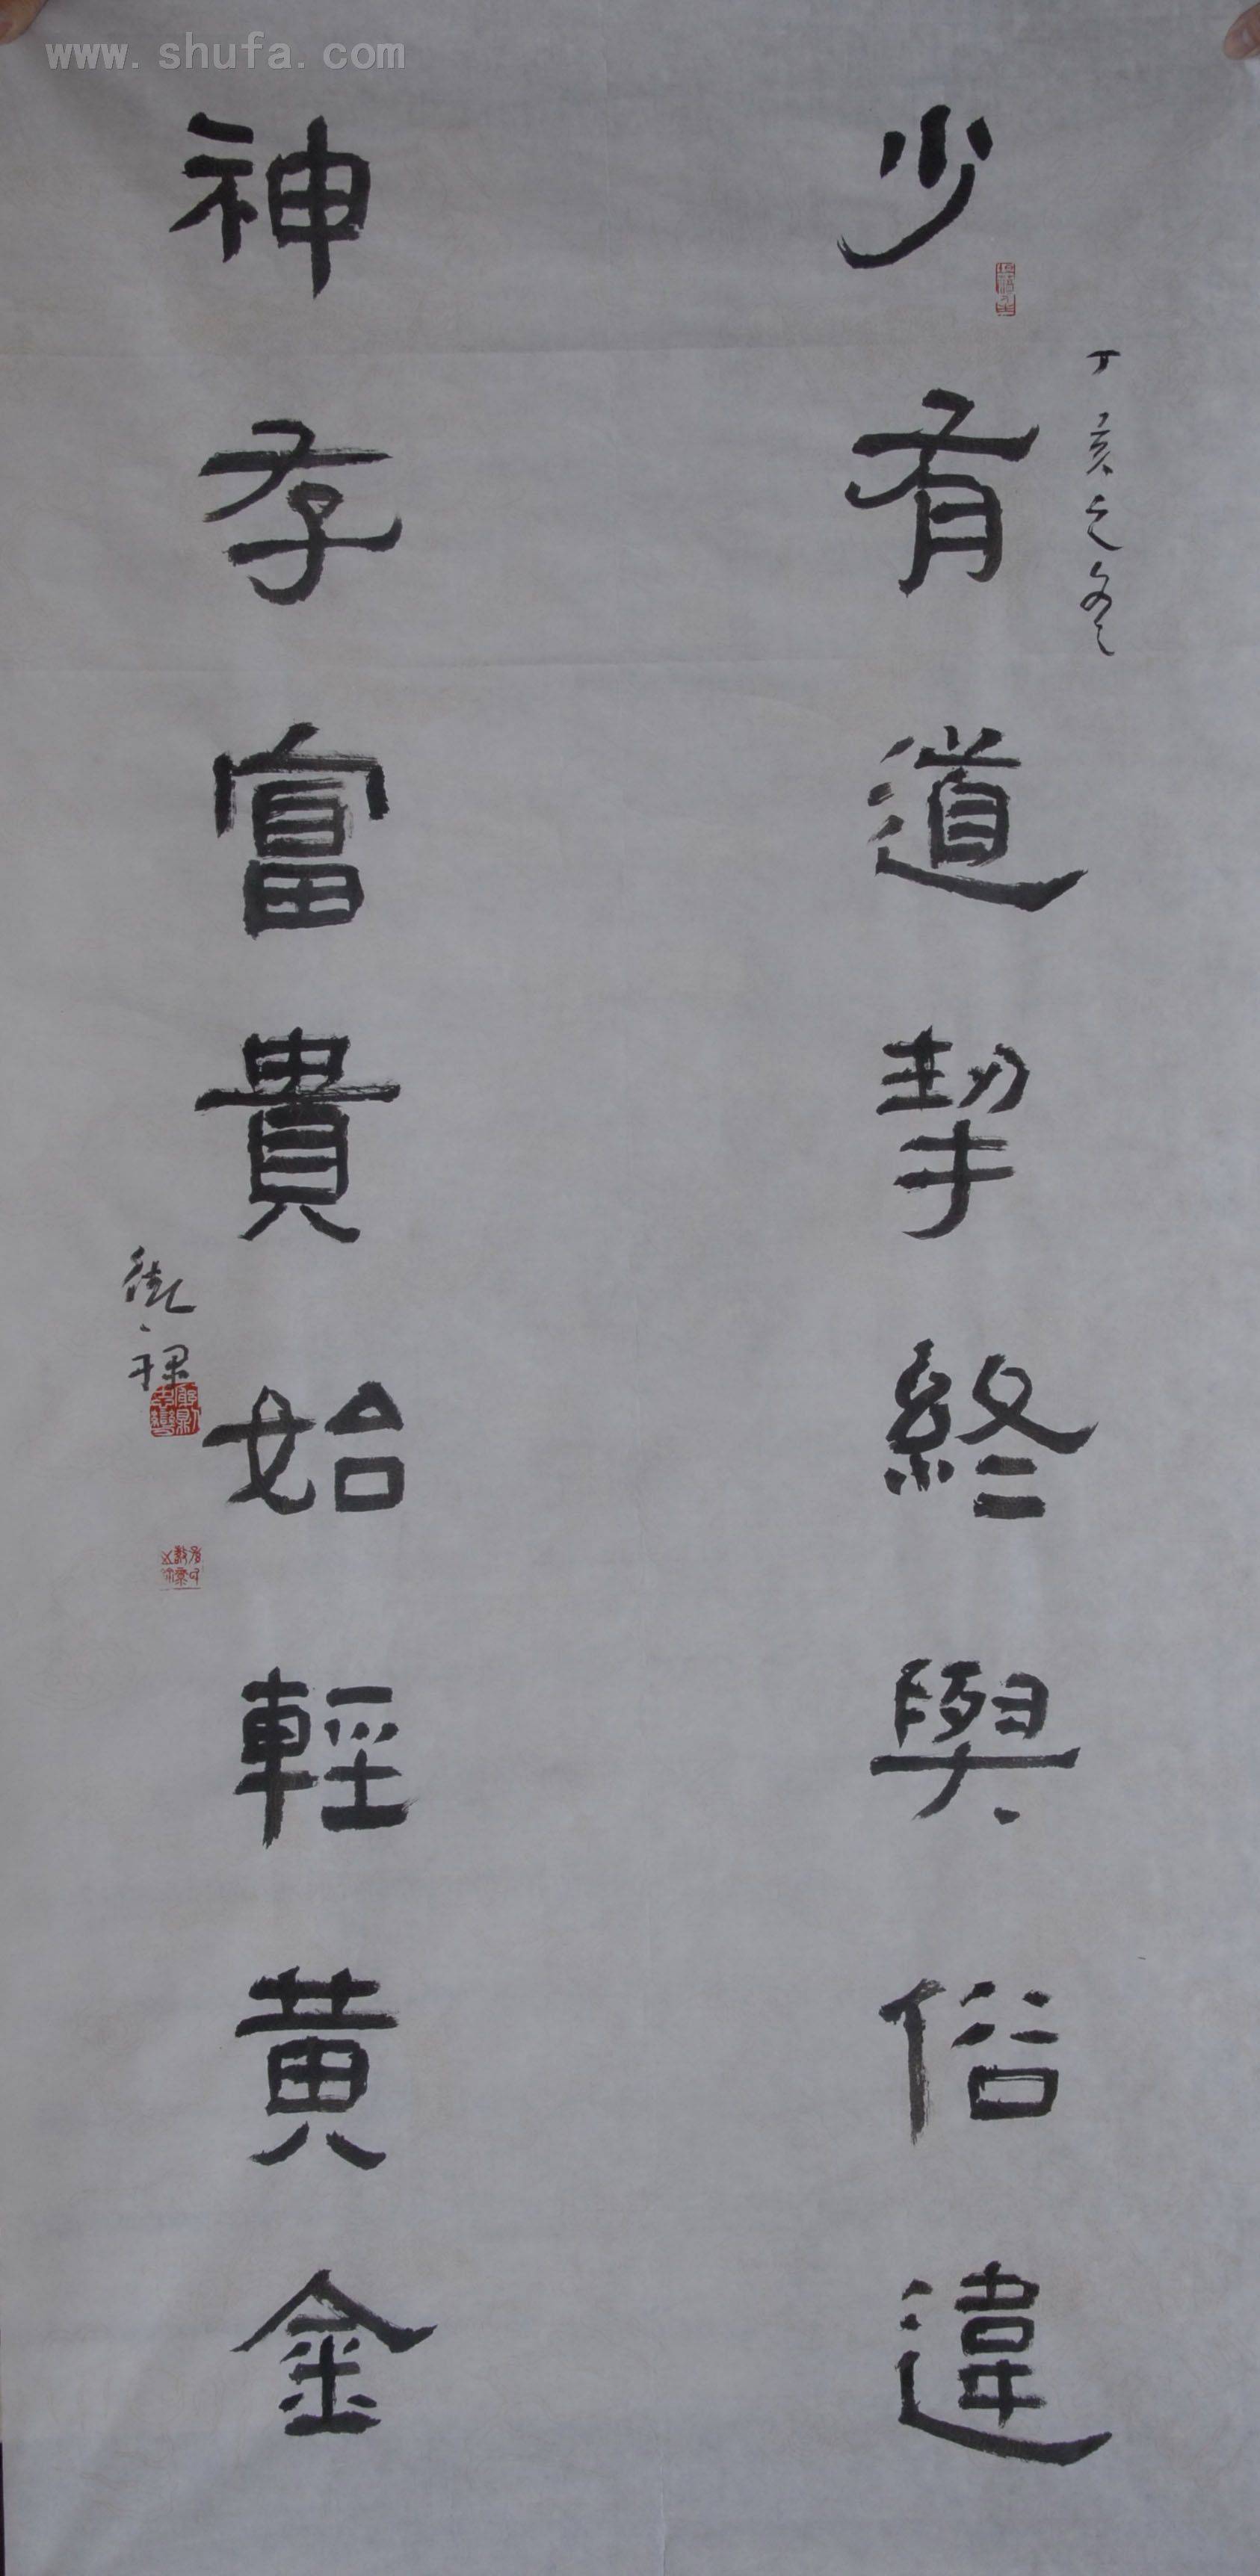 www.shufa.com
丁亥之冬
少有道挈終與俗違
神存富貴始輕黃金